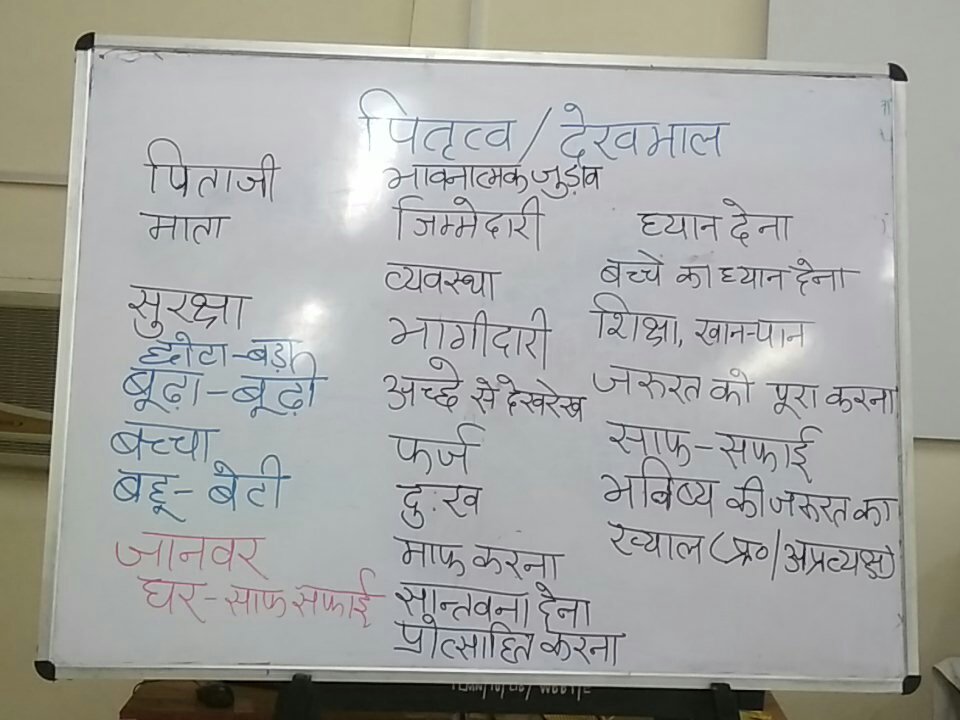 पितृत्व / देखभाल
पिताजी
माता
सुरक्षा
छोटा-बड़ा
बूढ़ा-बूढ़ी
बच्चा
बहू-बेटी
जानवर
घर-साफ सफाई
भावनात्मक जुड़ाव
जिम्मेदारी
व्यवस्था
भागीदारी
अच्छे से देखरेख
फर्ज
दु:ख
माफ करना
सान्तवना देना
प्रोत्साहित करना
ध्यान देना
बच्चे का ध्यान देना
शिक्षा, खान-पान
जरुरत को पूरा करना
साफ-सफाई
भविष्य की जरुरत का
ख्याल (प्र०/अप्रत्यक्ष)